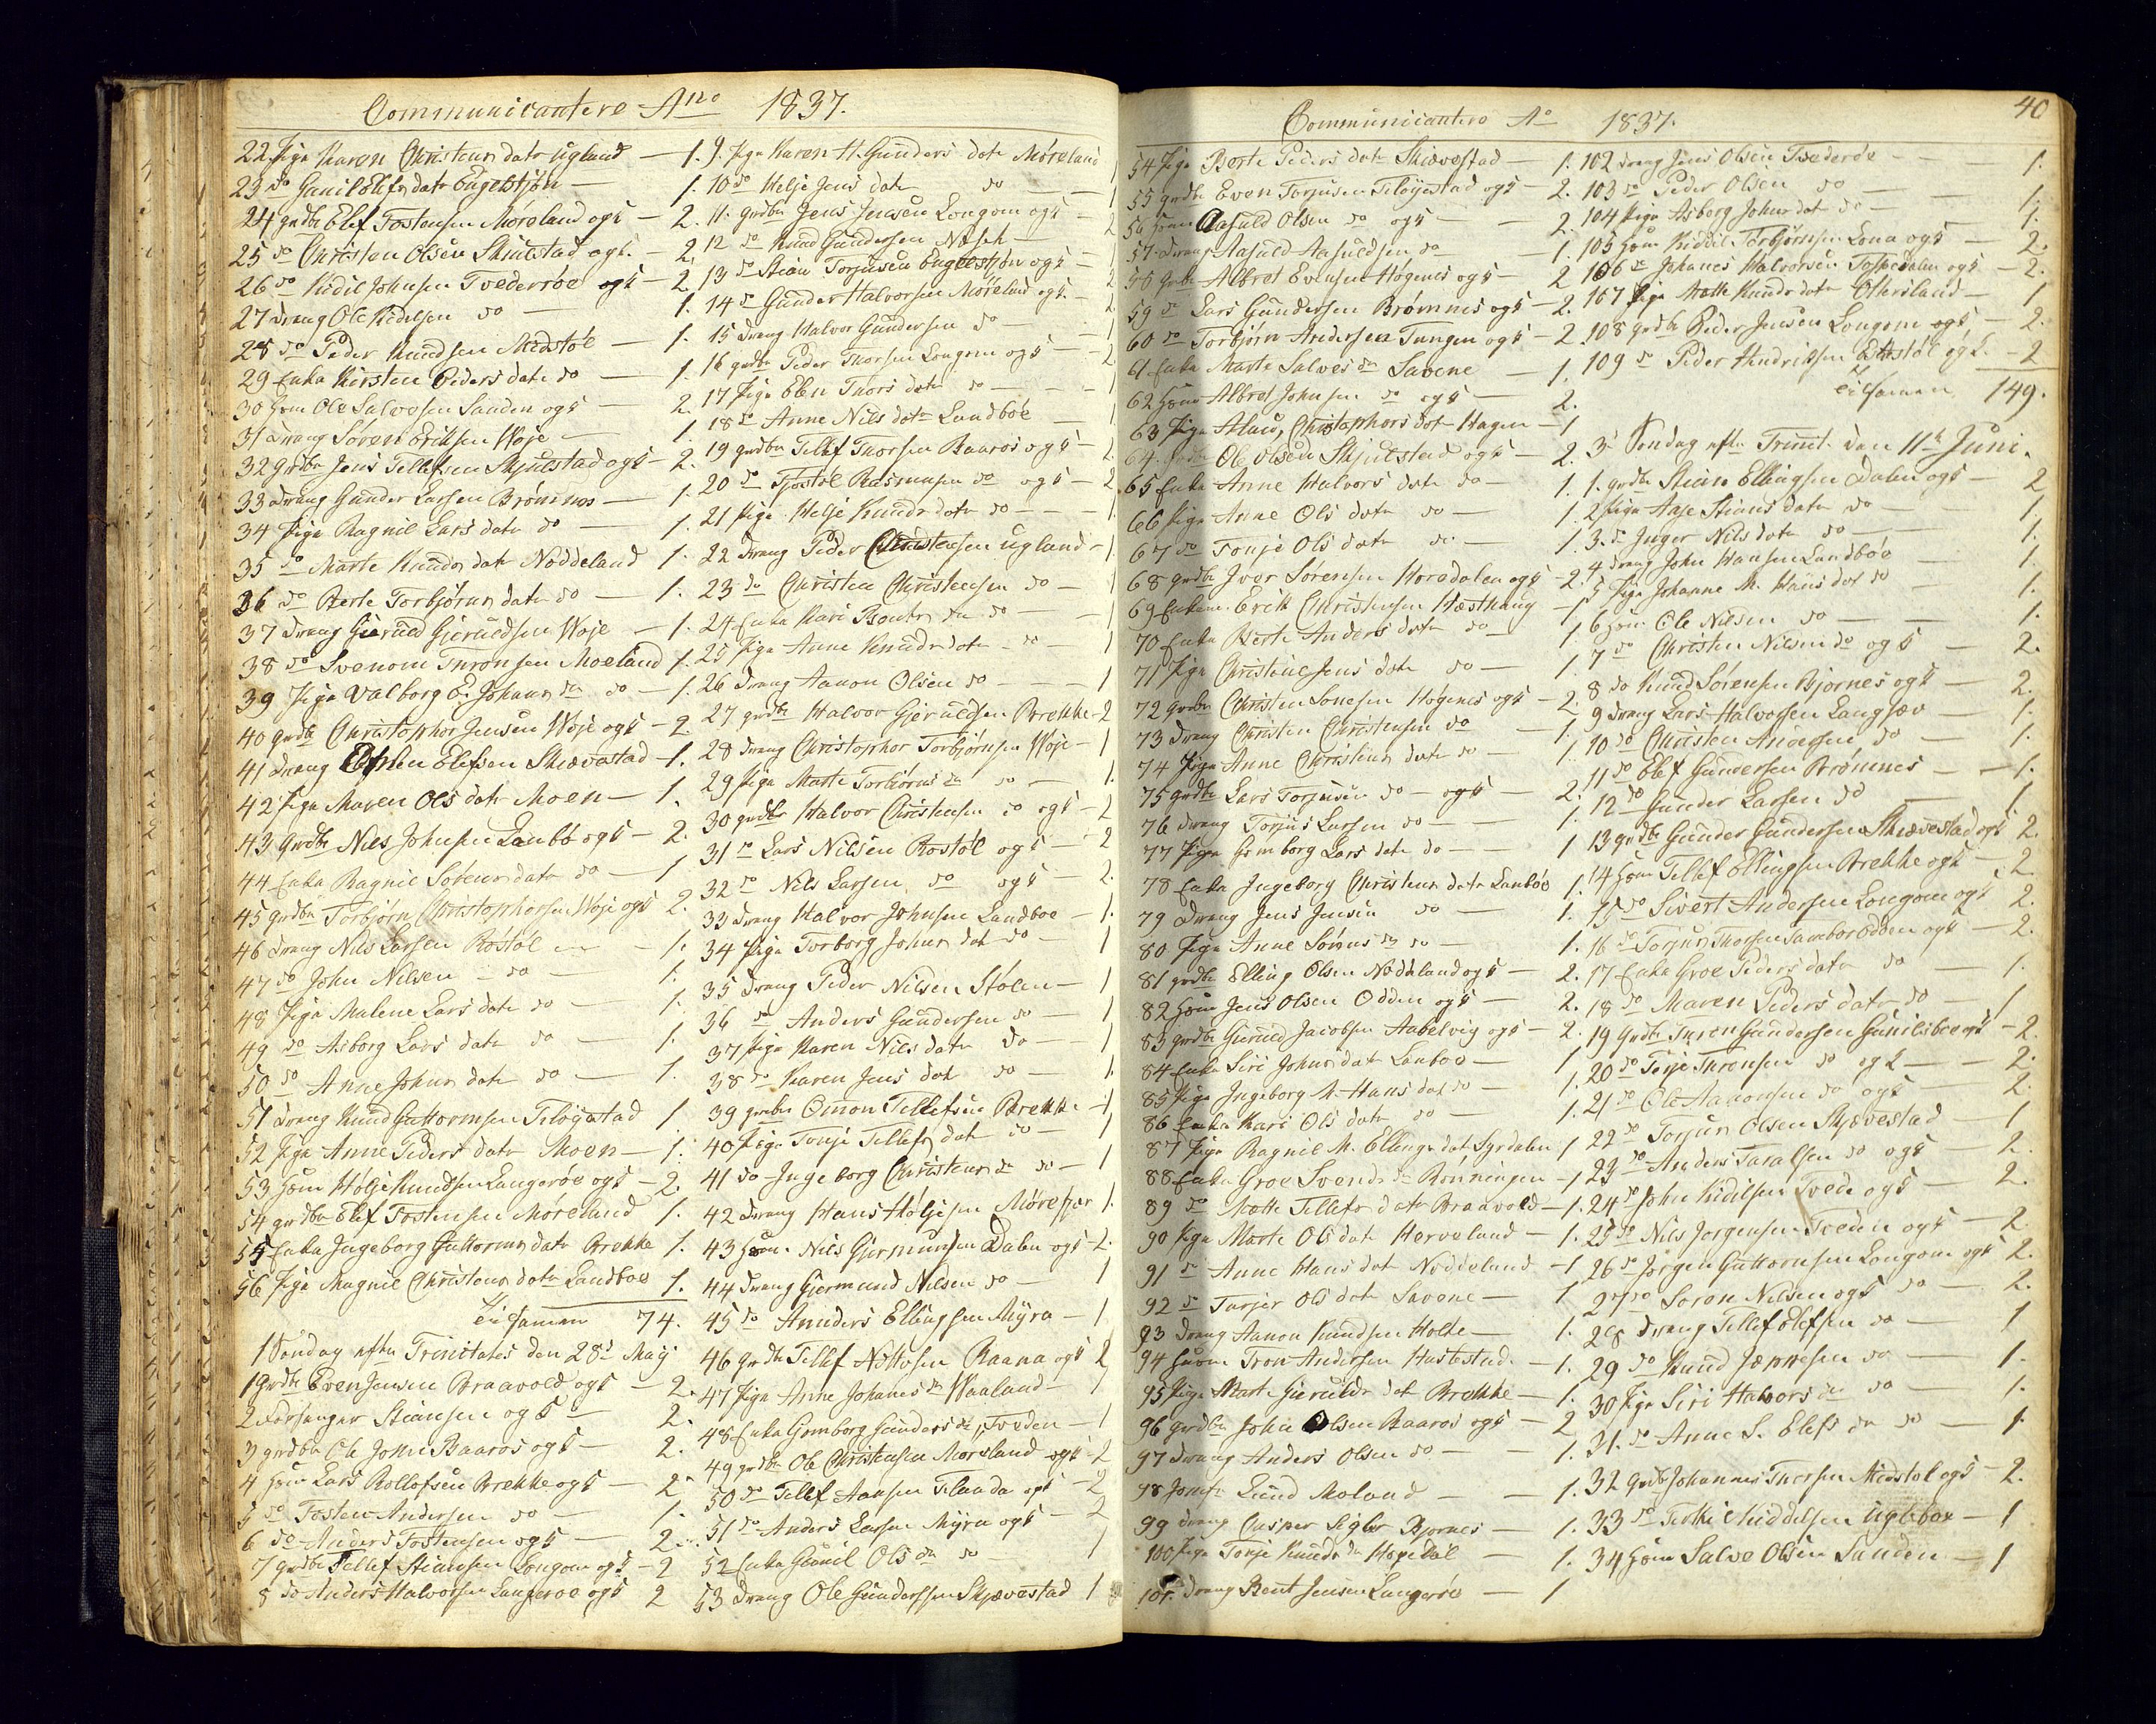 Communicantere Ano 1837.
22 Pige Karen Christens datr Ugland — 1.
23 do Gunil Elefs datr Engelstjøn — 1.
24 grdbr Elef Tostensen Møreland ogk — 2.
25 do Christen Olsen ogk — 2.
26 do Kidil Johnsen Tvederøe ogk — 2
27 Dreng Ole Kidelsen do — 1.
28 do Peder Knudsen Midstøl — 1.
29 Enke Kirsten Peders datr do — 1.
30 Huusm Ole Salvesen Sanden ogk — 2.
31 Dreng Søren Eriksen Woje — 1.
32 grdbr Jens Tellefsen Skjulstad ogk — 2.
33 Dreng Gunder Larsen Brømnes — 1.
34 Pige Ragnil Lars datr do — 1.
35 do Marte Knuds datr Noddeland 1.
36 do Berte Torbjørns datr do — 1.
37 Dreng Gieruld Gjeruldsen Woje — 1.
38 do Svenom Tronsen Moeland 1.
39 Pige Valborg E. Johns dr do — 1.
40 grdbr Christopher Jensen Woje ogk — 2.
41 Dreng Elefsen Skiævestad — 1.
42 Pige Maren Ols datr Moen — 1.
43 grdbr Nils Johnsen Lanbo ogk — 2.
44 Enke Ragnil Sørens datr do — 1
45 grdbr Torbjørn Christophersen Woje ogk 2.
46 Dreng Nils Larsen Rostøl — 1.
47 do John Nilsen do — 1.
48 Pige Malene Lars datr do — 1.
49 do Asborg Lars datr do — 1.
50 do Anne Johns datr do — 1.
51 Dreng Knud Guttormsen Tiløystad 1.
52 Pige Anne Peders datr Moen — 1.
53 Huusm Holje Knudsen Langerøe ogk — 2.
54 grdbr Elef Tostensen Møreland 1.
55 Enke Ingeborg Guttorms datr Brekke 1.
56 Pige Magnil Christens datr Landboe 1.
tilsamen 74.
1 Søndag efter Trinitates den 28d May
1 Grdbr Even Jensen Braavold ogk — 2.
2 Forsanger Stiansen ogk — 2.
3 grdbr Ole John Baaros ogk — 2.
4 Huusm Lars Rollefsen Brekke ogk — 2
5 do Tosten Andersen do — 1.
6 do Anders Tostensen ogk — 2.
7 grdbr Tellef Stiansen Longom ogk — 2
8 do Anders Halvorsen Langeroe ogk 2
9. Pige Karen H. Gunders datr Møreland 1
10 do Helje Jens datr do — 1
11. grdbr Jens Jensen Longom ogk — 2
12 do Knud Gundersen Næseh — 1
13 do Stian Torjusen Engelstjøn ogk
14 do Gunder Halvorsen Møreland ogk — 2
15 Dreng Halvor Gundersen do — 1
16 grdbr Peder Thorsen Longom ogk — 2
17 Pige Elen Thors datr do — 1
18 do Anne Nils datr Landboe 1
19 grdbr Tellef Thorsen Baaros ogk — 2
20 do Tjøstøl Rasmusen do ogk — 2
21 Pige Helje Knuds datr do — 1
22 Dreng Peder Christensen Ugland — 1
23 do Christen Christensen do — 1
24 Enke Kari Bents dr do — 1
25 Pige Anne Knuds datr do 1
26 Dreng Aanon Olsen do — 1
27 grdbr Halvor Gjeruldsen Brekke — 2
28 Dreng Christopher Torbjørnsen Woje — 1
29 Pige Marte Torbiørns dr do — 1.
30 grdbr Halvor Christensen do ogk — 2
31 do Lars Nilsen Rostøl ogk — 2
32 do Nils Larsen do ogk — 2.
33 Dreng Halvor Johnsen Landboe — 1.
34 Pige Torborg Johns dat do — 1
35 Dreng Peder Nilsen Stølen — 1
36 do Anders Gundersen do — 1
37 Pige Karen Nils datr do — 1
38 do Karen Jens dat do — 1.
39 grdbr Omon Tellefsen Brekke — 1
40 Pige Tonje Tellefs dat do — 1
41 do Ingeborg Christens dr do — 1
42 Dreng Hans Holjesen Mørefjær 1.
43 Huusm. Nils Gjermunsen Dalen ogk — 2.
44 Dreng Gjermund Nilsen do — 1
45 do Anders Ellingsen Myra — 1
46 grdbr Tellef Nottosen Raana ogk 2
47 Pige Anne Johanes dr Waaland — 1
48 Enke Gomborg Gunders dr, Tveden — 1
49 grdbr Ole Christensen Moreland ogk — 2
50 do Tellef Aansen ogk — 2
51 do Anders Larsen Myra ogk — 2
52 Enke Gunil Ols dr do 1
53 Dreng Ole Gunderssen Skjævestad 1
Communicantere Ao 1837.
40
54 Pige Berte Peders datr Skiævestad — 1.
55 grdbr Even Torjusen Tiløystad ogk — 2.
56 Huusm Aasuld Olsen do ogk — 2.
57 Dreng Aasuld Aasuldsen do — 1.
58 grdbr Albret Evensen Høgenes ogk — 2
59 do Lars Gundersen Brømnes ogk — 2.
60 do Torbjørn Andersen Tangen ogk — 2.
61 Enke Marte Salves dr Savene — 1.
62 Huusm Albret Johnsen do ogk — 2.
63 Pige Christophers dat Hagen — 1
64 grdbr Ole Olsen Skjulstad ogk — 2.
65 Enke Anne Halvors datr do — 1.
66 Pige Anne Ols datr do — 1.
67 do Tonje Ols datr do — 1
68 grdbr Iver Sørensen Horedalen ogk — 2.
69 Erik Christensen Hæsthaug — 1
70 Enke Berte Anders datr do — 1
71 Pige Christene Jens datr do — 1.
72 grdbr Christen Sonesen Høgenes ogk — 2.
73 Dreng Christen Christensen do — 1.
74 Pige Anne Christens datr do — 1.
75 grdbr Lars Torjusen do — ogk — 2.
76 Dreng Torjus Larsen do — 1.
77 Pige Gomborg Lars datr do — 1
78 Enke Ingeborg Christens datr Lanboe 1.
79 Dreng Jens Jensen do — 1.
80 Pige Anne Sørens dr do — 1.
81 grdbr Elling Olsen Noddeland ogk — 2.
82 Huusm Jens Olsen Odden ogk — 2.
83 grdbr Gieruld Jacobsen Aabelvig ogk — 2.
84 Enke Siri Johns datr Lanboe — 1
85 Pige Ingeborg M. Hans dat do — 1.
86 Enke Kari Ols datr do — 1.
87 Pige Ragnil M. Ellings dat Syrdalen 1
88 Enke Groe Svends dr Rønningen — 1
89 do Mætte Tellefs datr Braavold — 1.
90 Pige Marte Ols dat Herveland — 1.
91 do Anne Hans dat Noddeland — 1
92 do Tarjer Ols dat Savene — 1
93 Dreng Aanon Knudsen Holte — 1.
94 Huusm Tron Andersen Hustestad — 1.
95 Pige Marte Gierulds dat Brekke — 1.
96 grdbr John Olsen Baaros ogk — 2
97 Dreng Anders Olsen do — 1.
98 Jomfr Lund Moland — 1.
99 Dreng Casper Segler Bjornes — 1.
100 Pige Tonje Knuds dr Hopedal — 1.
101. Dreng Bent Jensen Langerøe — 1
102 Dreng Jens Olsen Tvederøe — 1.
103 do Peder Olsen do — 1.
104 Pige Asborg Johns dat do — 1.
105 Huusm Kiddil Torbjørnsen Lona ogk — 2.
106 do Johanes Halvorsen ogk — 2.
107 Pige Mætte Knuds datr Othersland — 1
108 grdbr Peder Jensen Longom ogk — 2.
109 do Peder Hendriksen ogk — 2
tilsamen 149.
3 Søndag efter Trinit. den 11te Juni.
1. grdbr Stian Ellingsen Dalen ogk — 2
2 Pige Aase Stians datr do — 1.
3 do Inger Nils datr do — 1.
4 Dreng John Hansen Landbøe 1.
5 Pige Johanne M. Hans dat do 1.
6 Huusm Ole Nilsen do — 1.
7 do Christen Nilsen do ogk 2.
8 do Knud Sørensen Bjornes ogk — 2.
9 Dreng Lars Halvorsen Langsæv — 1.
10 do Christen Andersen do — 1.
11 do Elef Gundersen Brømnes — 1.
12 do Gunder Larsen do 1.
13 grdbr Gunder Gundersen Skiævestad ogk 2.
14 Huusm Tellef Ellingsen Brekke ogk — 2.
15 do Sivert Andersen Longom ogk 2.
16 do Torjus Thorsen Sambor Odden ogk — 2.
17 Enke Groe Peders datr do — 1.
18 do Maren Peders datr do — 1
19 Grdbr Tron Gundersen Gunilsboe ogk — 2.
20 do Terje Tronsen do ogk — 2.
21 do Ole Aanonsen do ogk — 2
22 do Torjus Olsen Skjævestad 1
23 do Anders Taralsen do ogk — 2.
24 do John Kidilsen Tvede ogk — 2.
25 do Nils Jorgensen Tveden ogk — 2
26 do Jørgen Guttormsen Longom ogk 2.
27 do Soren Nilsen ogk do — 2.
28 Dreng Tellef Elefsen do — 1
29 do Knud Jeppesen do — 1.
30 Pige Siri Halvors dr do — 1.
31. do Anne S. Elefs dr do — 1
32 Grdbr Johannes Thorsen Midstøl ogk — 2.
33 do Terkil Kiddelsen Ugleboe — 1
34 Huusm Salve Olsen Sanden — 1